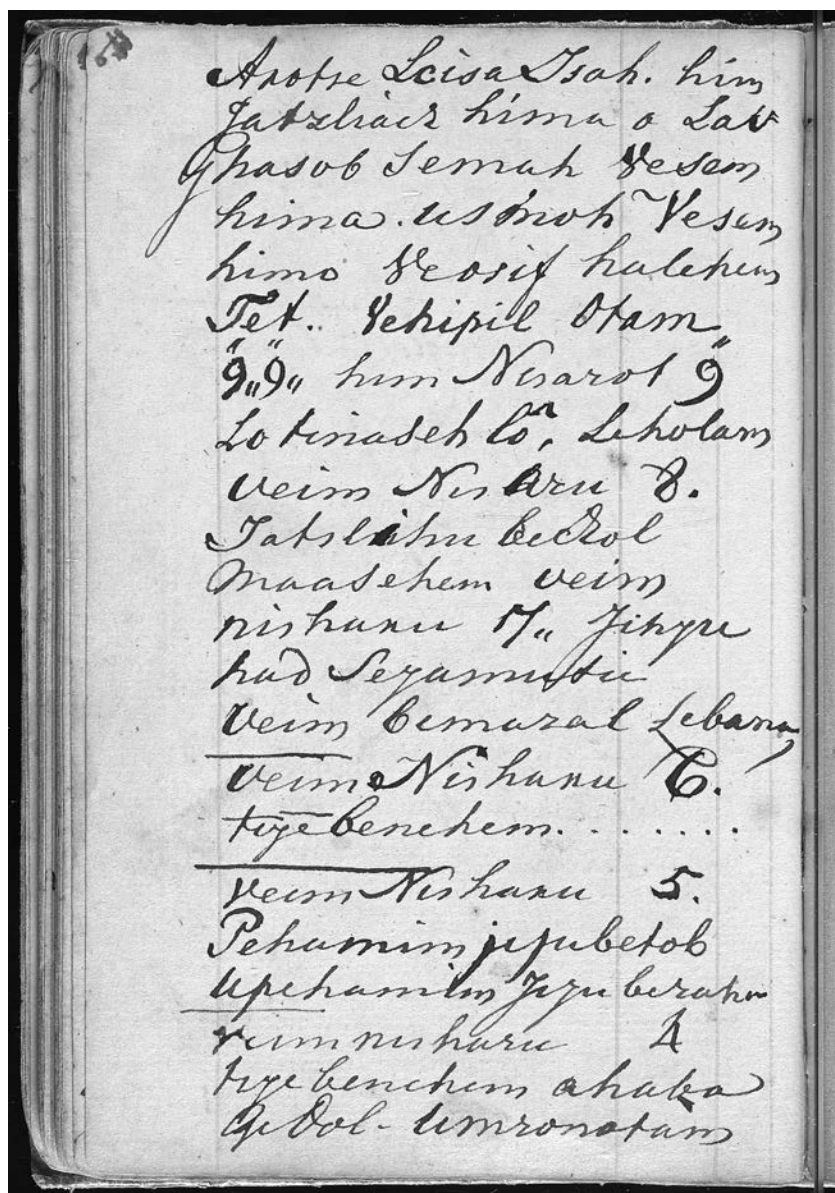 Arotse Leisa Isah. him
Jatzliach hima o Lav
Ghasob Semah Vesem
hima. usmoh Vesem
himo Veosif halehem
Tet. Vehipil Otam
9,,9,, him Nisarot 9
Lo tinaseh lo, Leholam
veim Nisaru 8.
Jatslihu bechol
maasehem veim
nisharu 7,, Jihyu
had Seyamutu
Veim bemazal Lebana
veim Nisharu 6.
tiye benehem........
veim Nisharu 5.
Pehamim jiyu betob
upehamim Jiyu berah
veim nisharu 4
tiye benehem ahaba
gedol - umzonotam